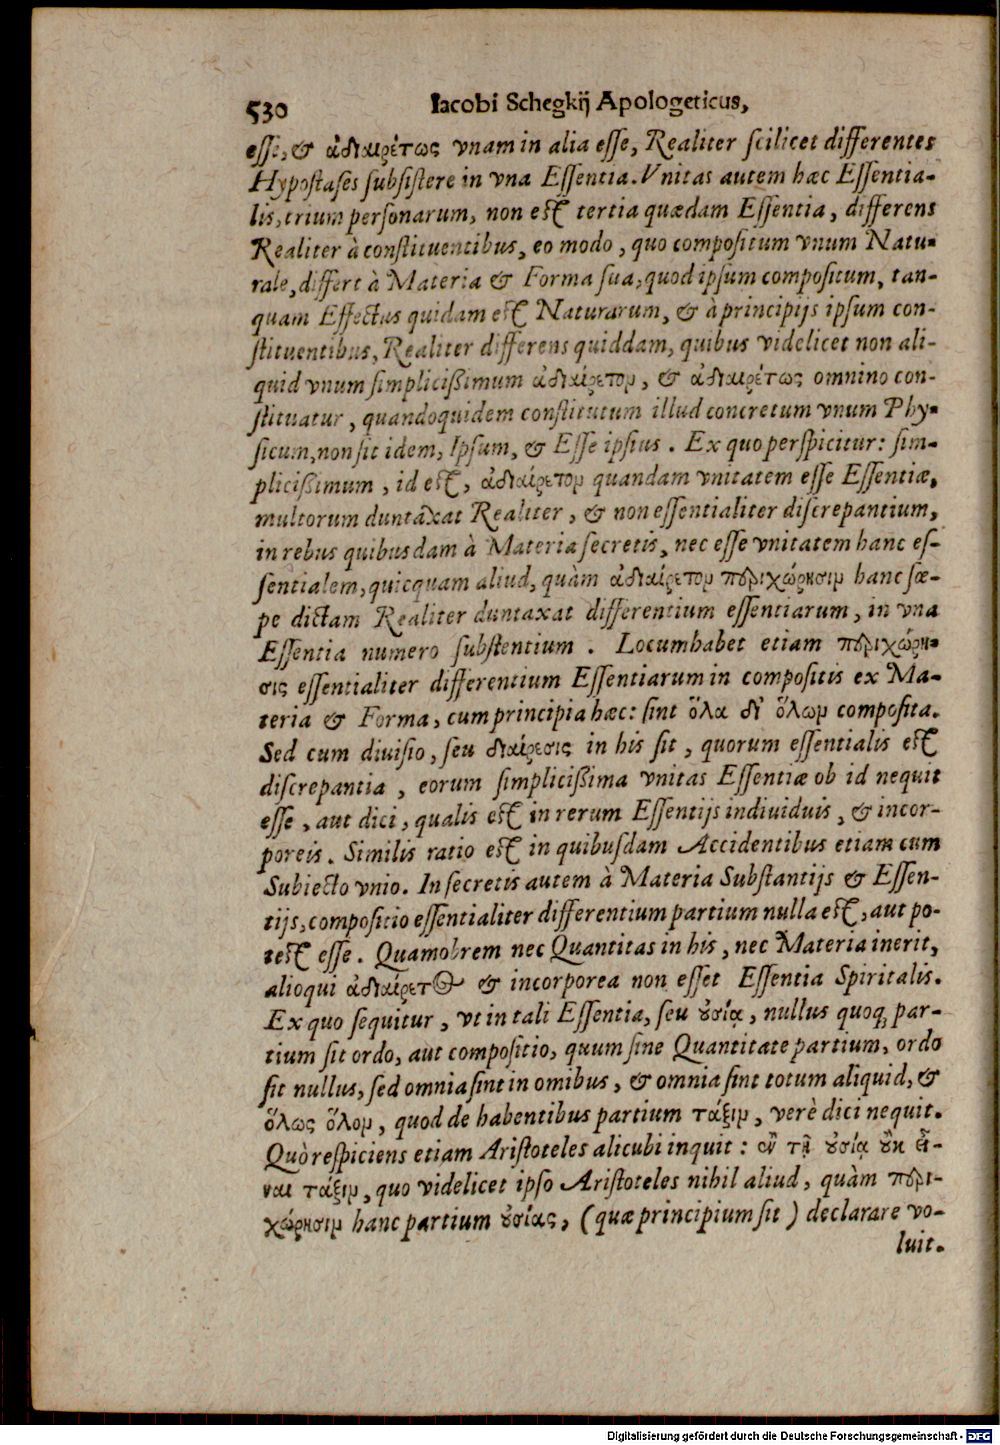 530 Iacobi Schegkij Apologeticus,
esse, & ἀδιαιρέτως vnam in alia esse, Realiter scilicet differentes
Hypostases subsistere in vna Essentia. Vnitas autem hæc Essentia-
lis, trium personarum, non est tertia quædam Essentia, differens
Realiter à constituentibus, eo modo, quo compositum vnum Natu-
rale, differt à Materia & Forma sua, quod ipsum compositum, tan-
quam Effectus quidam est Naturarum, & à principijs ipsum con-
stituentibus, Realiter differens quiddam, quibus videlicet non ali-
quid vnum simplicißimum ἀδιαίρετον, & ἀδιαιρέτως omnino con-
stituatur, quandoquidem constitutum illud concretum vnum Phy-
sicum, non sit idem, Ipsum, & Esse ipsius. Ex quo perspicitur: sim-
plicißimum, id est, ἀδιαίρετον quandam vnitatem esse Essentiæ,
multorum duntaxat Realiter, & non essentialiter discrepantium,
in rebus quibusdam à Materia secretis, nec esse vnitatem hanc es-
sentialem, quicquam aliud, quàm ἀδιαίρετον περιχώρησιν hanc sæ-
pe dictam Realiter duntaxat differentium essentiarum, in vna
Essentia numero substentium. Locum habet etiam περιχώρη-
σις essentialiter differentium Essentiarum in compositis ex Ma-
teria & Forma, cum principia hæc: sint ὅλα δι' ὅλων composita.
Sed cum diuisio, seu διαίρεσις in his sit, quorum essentialis est
discrepantia, eorum simplicißima vnitas Essentiæ ob id nequit
esse, aut dici, qualis est in rerum Essentijs indiuiduis, & incor-
poreis. Similis ratio est in quibusdam Accidentibus etiam cum
Subiecto vnio. In secretis autem à Materia Substantijs & Essen-
tijs, compositio essentialiter differentium partium nulla est, aut po-
test esse. Quamobrem nec Quantitas in his, nec Materia inerit,
alioqui ἀδιαίρετος & incorporea non esset Essentia Spiritalis.
Ex quo sequitur, vt in tali Essentia, seu οὐσίᾳ, nullus quoq; par-
tium sit ordo, aut compositio, quum sine Quantitate partium, ordo
sit nullus, sed omnia sint in omibus, & omnia sint totum aliquid, &
ὅλως ὅλον, quod de habentibus partium τάξιν, verè dici nequit.
Quò respiciens etiam Aristoteles alicubi inquit: ἐν τῇ οὐσίᾳ οὐκ εἶ-
ναι τάξιν, quo videlicet ipso Aristoteles nihil aliud, quàm περι-
χώρησιν hanc partium οὐσίας, (quæ principium sit) declarare vo-
luit.
Digitalisierung gefördert durch die Deutsche Forschungsgemeinschaft - DFG